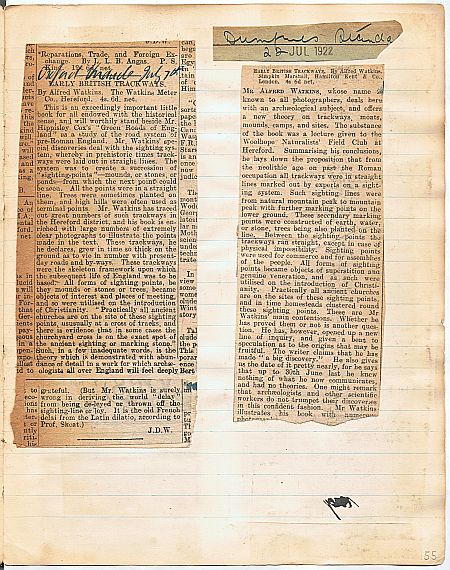 "Reparations, Trade, and Foreign Ex-
change. By L. L. B. Angas. P. S.
Oxford Chronicle July 7th
EARLY BRITISH TRACKWAYS.
By Alfred Watkins. The Watkins Meter
Co., Hereford. 4s. 6d. net.
This is an exceedingly important little
book for all endowed with the historical
sense, and will worthily stand beside Mr.
Hippisley Cox's "Green Roads of Eng-
land" as a study of the road system of
pre-Roman England. Mr. Watkins's spe-
cial discoveries deal with the sighting sys-
tem, whereby in prehistoric times track-
ways were laid out in straight lines. The
system was to create a succession of
"sighting-points"—mounds, or stones, or
ponds—from which the next point could
be seen. All the points were in a straight
line. Trees were sometimes planted on
them, and high hills were often used as
terminal points. Mr. Watkins has traced
out great numbers of such trackways in
the Hereford district, and his book is en-
riched with large numbers of extremely
clear photographs to illustrate the points
made in the text. These trackways, he
he declares, grew in time so thick on the
ground as to vie in number with present-
day roads and by-ways. These trackways
were the skeleton framework upon which
the subsequent life of England was to be
based. All forms of sighting points, be
they mounds or stones or trees, became
objects of interest and places of meeting,
and so were utilised on the introduction
of Christianity. "Practically all ancient
churches are on the site of these sighting
points, unusually at a cross of tracks, and
there is evidence that in some cases the
churchyard cross is on the exact spot of
the ancient sighting or marking stone."
Such, in a few inadequate words, is the
theory which is demonstrated with abun-
dance of detail in a work for which archæ-
ologists all over England will feel deeply
grateful. (But Mr. Watkins is surely
wrong in deriving the world "delay"
from being de-leyed or thrown off the
sighting-line or ley. It is the old French
delai from the Latin dilatio, according to
Prof. Skeat.)
J.D.W.
Dumfries Standard
22 JUL 1922
EARLY BRITISH TRACKWAYS. By Alfred Watkins.
Simpkin Marshall, Hamilton Kent & Co.,
London. 4s 6d net.
MR ALFRED WATKINS, whose name is
known to all photographers, deals here
with an archæological subject, and offers
a new theory on trackways, moats,
mounds, camps, and sites. The substance
of the book was a lecture given to the
Woolhope Naturalists' Field Club at
Hereford. Summarising his conclusions,
he lays down the proposition that from
the neolithic age on past the Roman
occupation all trackways were in straight
lines marked out by experts on a sight-
ing system. Such sighting lines were
from natural mountain peak to mountain
peak with further marking points on the
lower ground. These secondary marking
points were constructed of earth, water,
or stone, trees being also planted on the
line. Between the sighting points the
trackways ran straight, except in case of
physical impossibility. Sighting points
were used for commerce and for assemblies
of the people. All forms of sighting
points became objects of superstition and
genuine veneration, and as such were
utilised on the introduction of Christi-
anity. Practically all ancient churches
are on the sites of these sighting points,
and in time homesteads clustered round
these sighting points. These are Mr
Watkins' main contentions. Whether he
has proved them or not is another ques-
tion. He has, however, opened up a new
line of inquiry, and given a bent to
speculation as to the origins that may be
fruitful. The writer claims that he has
made "a big discovery." He also gives
us the date of it pretty nearly, for he says
that up to 30th June last he knew
nothing of what he now communicates,
and had no theories. One might remark
that archæologists and other scientific
workers do not trumpet their discoveries
in this confident fashion. Mr Watkins
illustrates his book with numerous
55